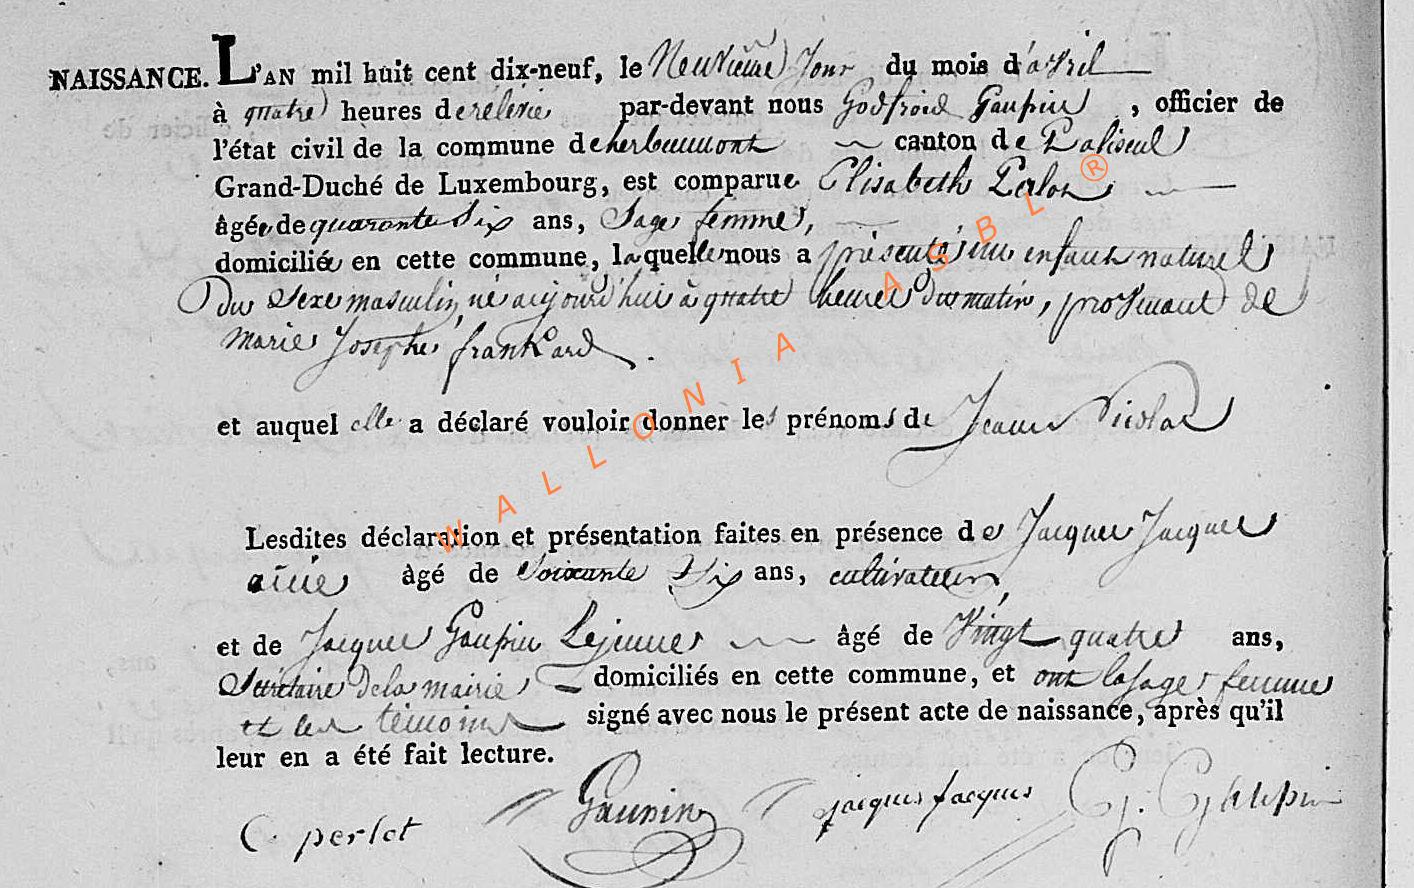 NAISSANCE. L'AN mil huit cent dix-neuf, le Neuvieme Jour du mois d'avril
à quatre heures de relevée par-devant nous Godfroid Gaupin, officier de
l'état civil de la commune de herbeumont canton de Paliseul
Grand-Duché de Luxembourg, est comparue Elisabeth Perlot
âgée de quarante Six ans, Sage femme,
domiciliée en cette commune, laquelle nous a présenté un enfant naturel
Du Sexe masculin, né aujourd'hui à quatre heures Du matin, provenant de
Marie Josephe frankard.
et auquel elle a déclaré vouloir donner les prénoms de Jean Nicolas
Lesdites déclaration et présentation faites en présence de Jacques Jacques
ainé âgé de Soixante Six ans, cultivateur,
et de Jacques Gaupin Lejeune âgé de Vingt quatre ans,
Secrétaire De la mairie domiciliés en cette commune, et ont la sage femme
et les témoins signé avec nous le présent acte de naissance, après qu'il
leur en a été fait lecture.
perlot Gaupin jacques jacques G: Gaupin
WALLONIA ASBL ®